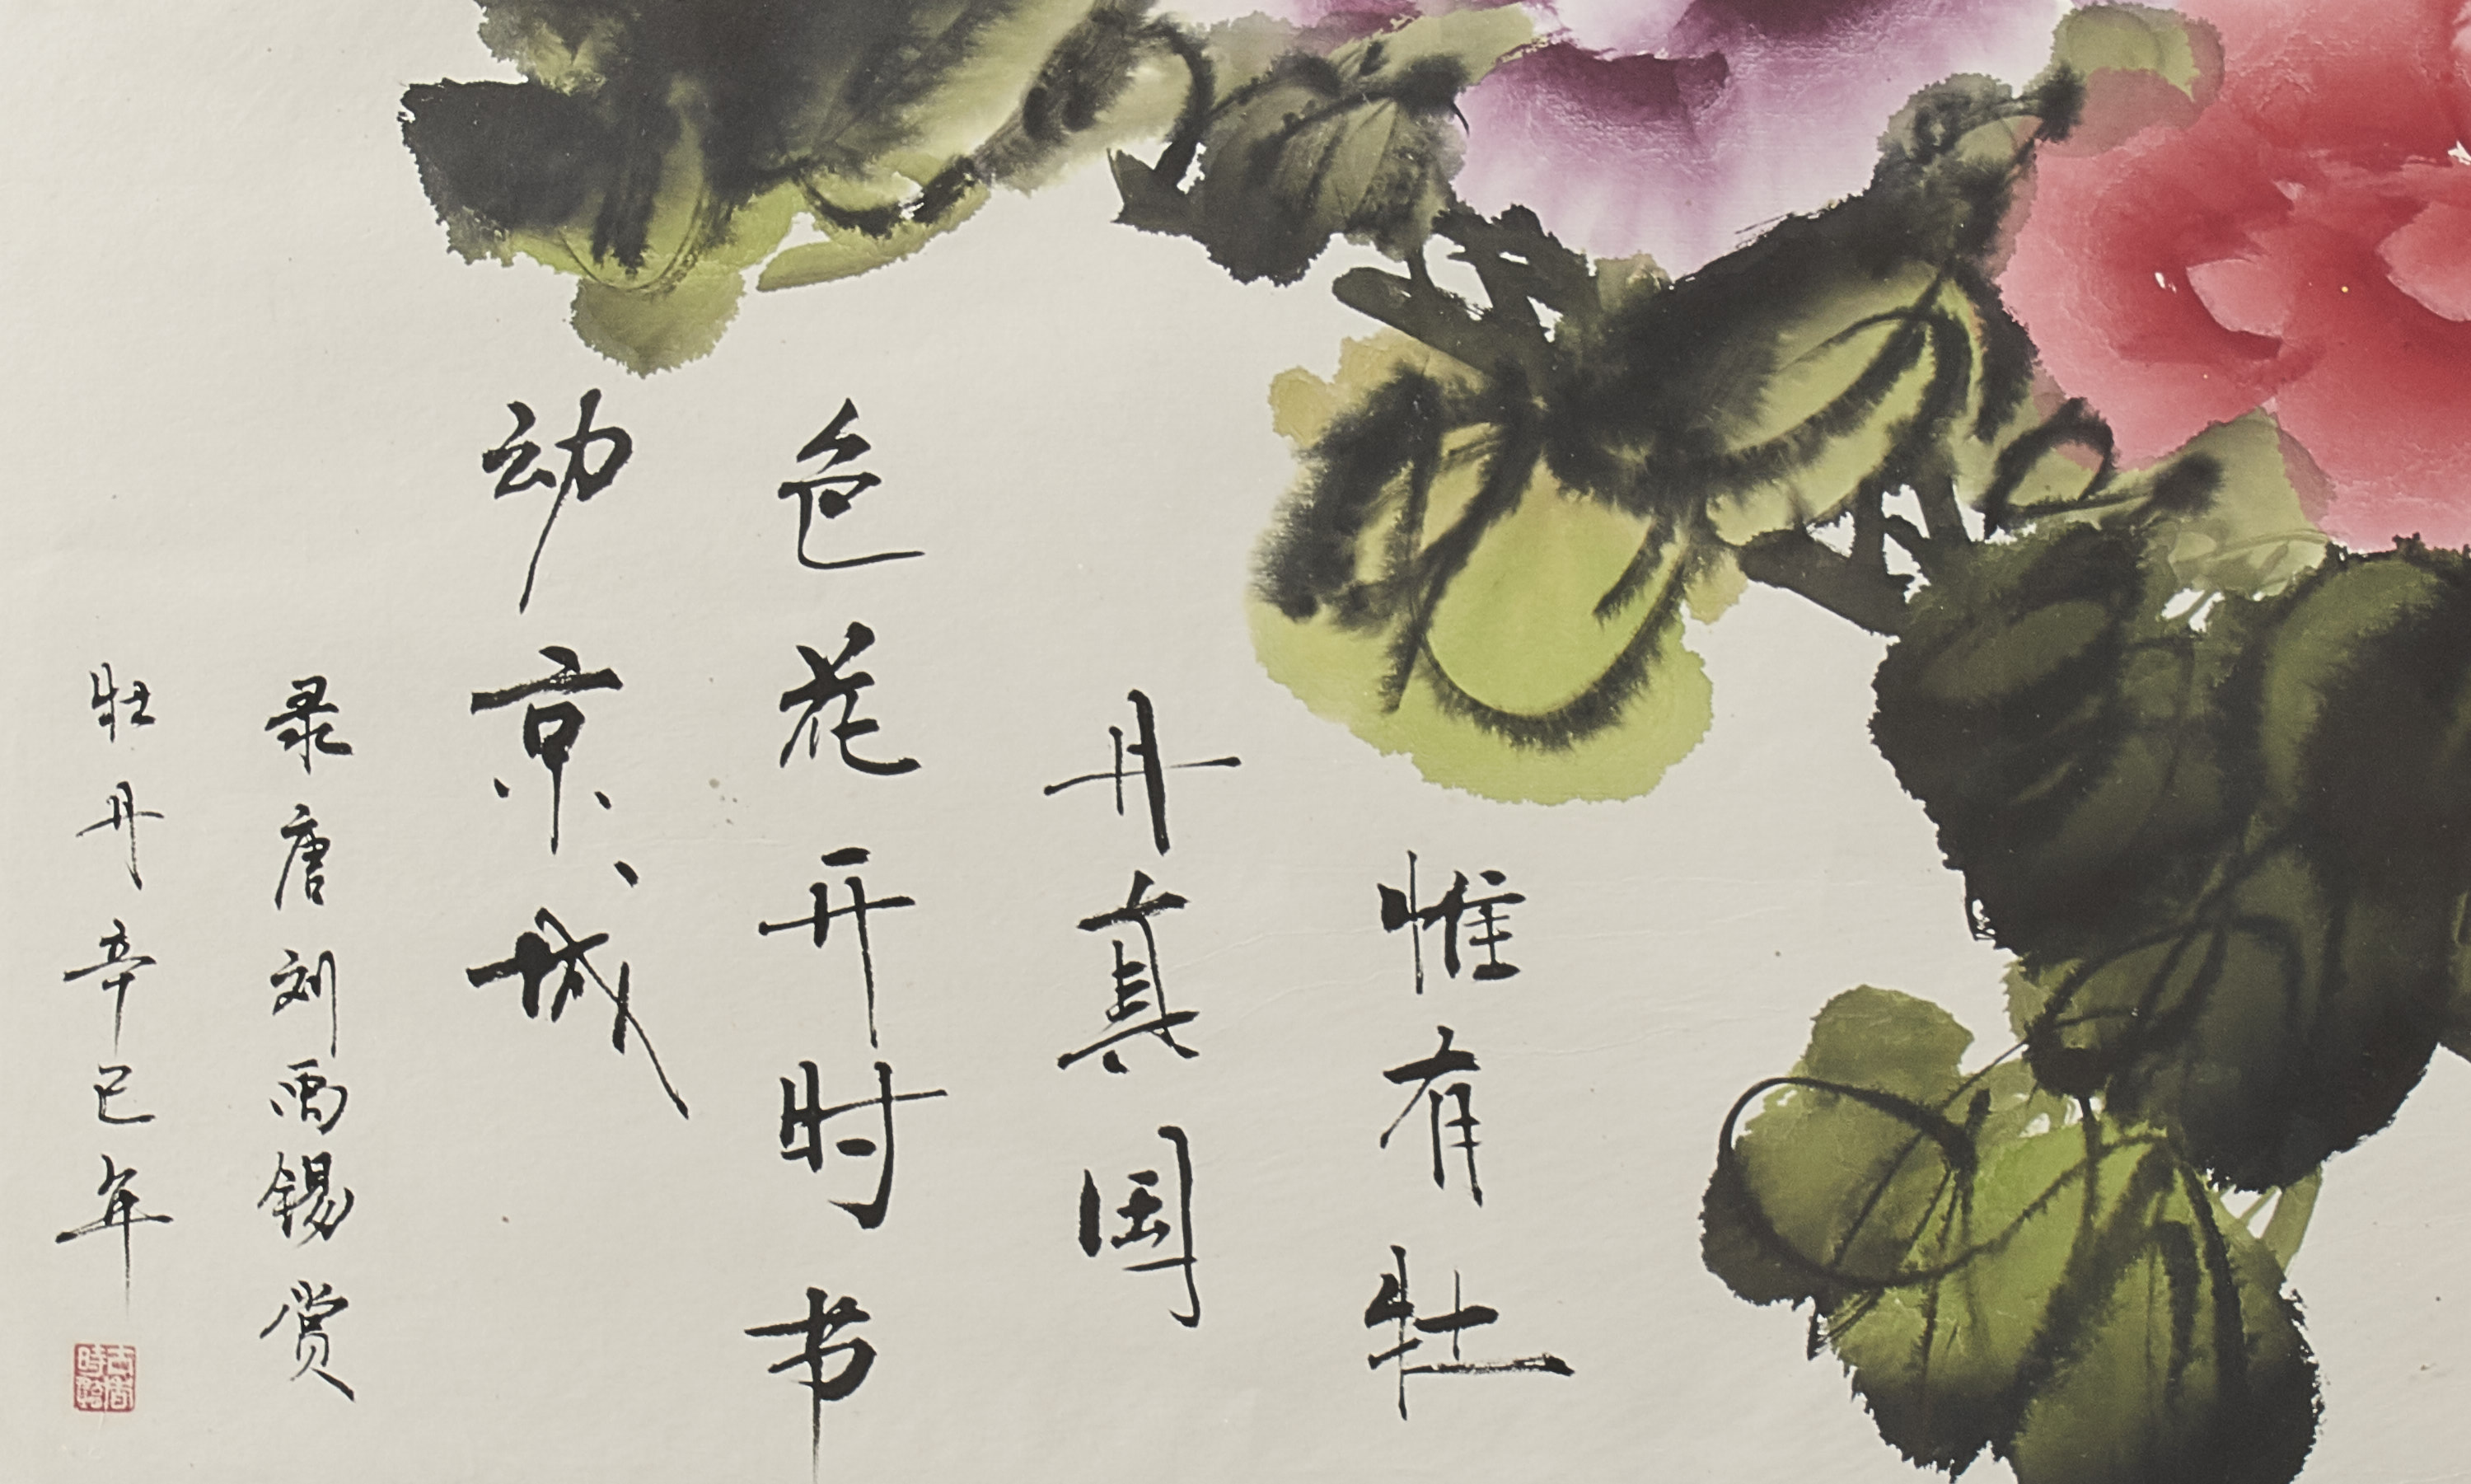 惟有牡
丹真国
色花开时书
动京城
录唐刘禹锡赏
牡丹辛巳年